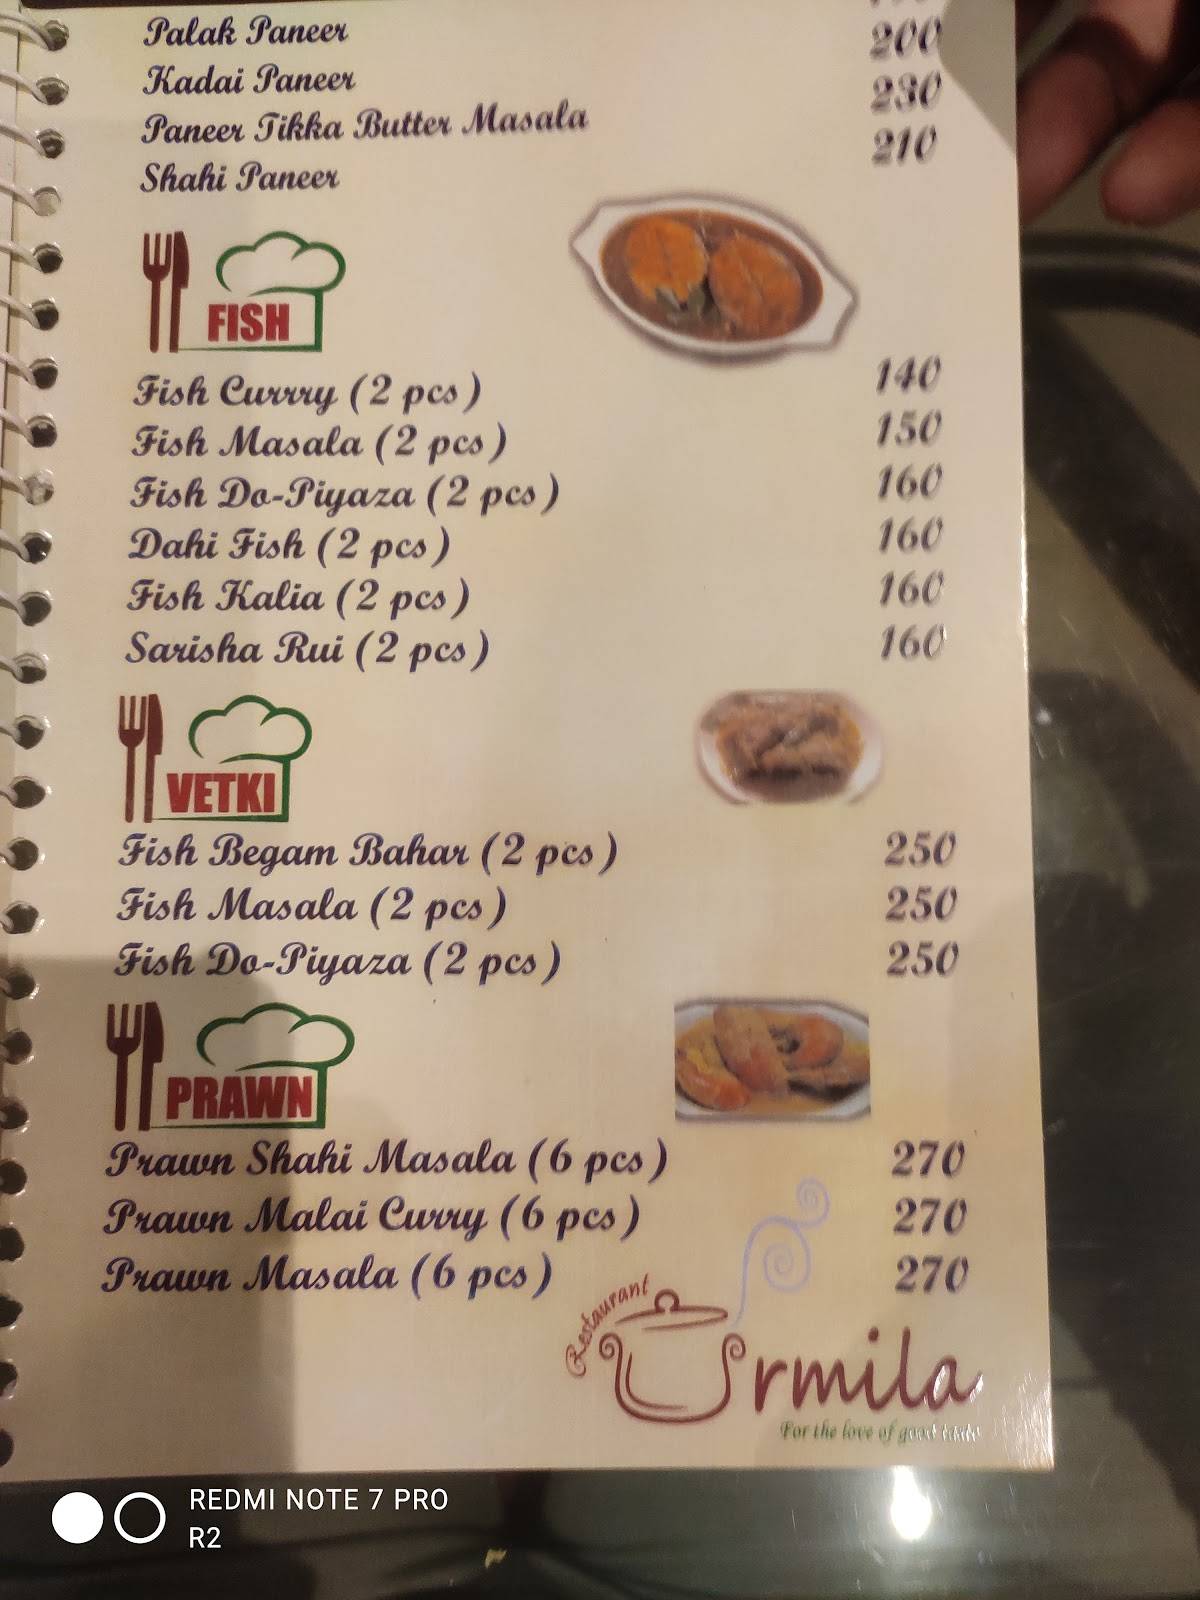 Palak Paneer
Kadai Paneer 200
Paneer Tikka Butter Masala 230
Shahi Paneer 210
FISH
Fish Currry (2 pcs) 140
Fish Masala (2 pcs) 150
Fish Do-Piyaza (2 pcs) 160
Dahi Fish (2 pcs) 160
Fish Kalia (2 pcs) 160
Sarisha Rui (2 pcs) 160
VETKI
Fish Begam Bahar (2 pcs) 250
Fish Masala (2 pcs) 250
Fish Do-Piyaza (2 pcs) 250
PRAWN
Prawn Shahi Masala (6 pcs) 270
Prawn Malai Curry (6 pcs) 270
Prawn Masala (6 pcs) 270
Restaurant
Urmila
For the love of good
REDMI NOTE 7 PRO
R2